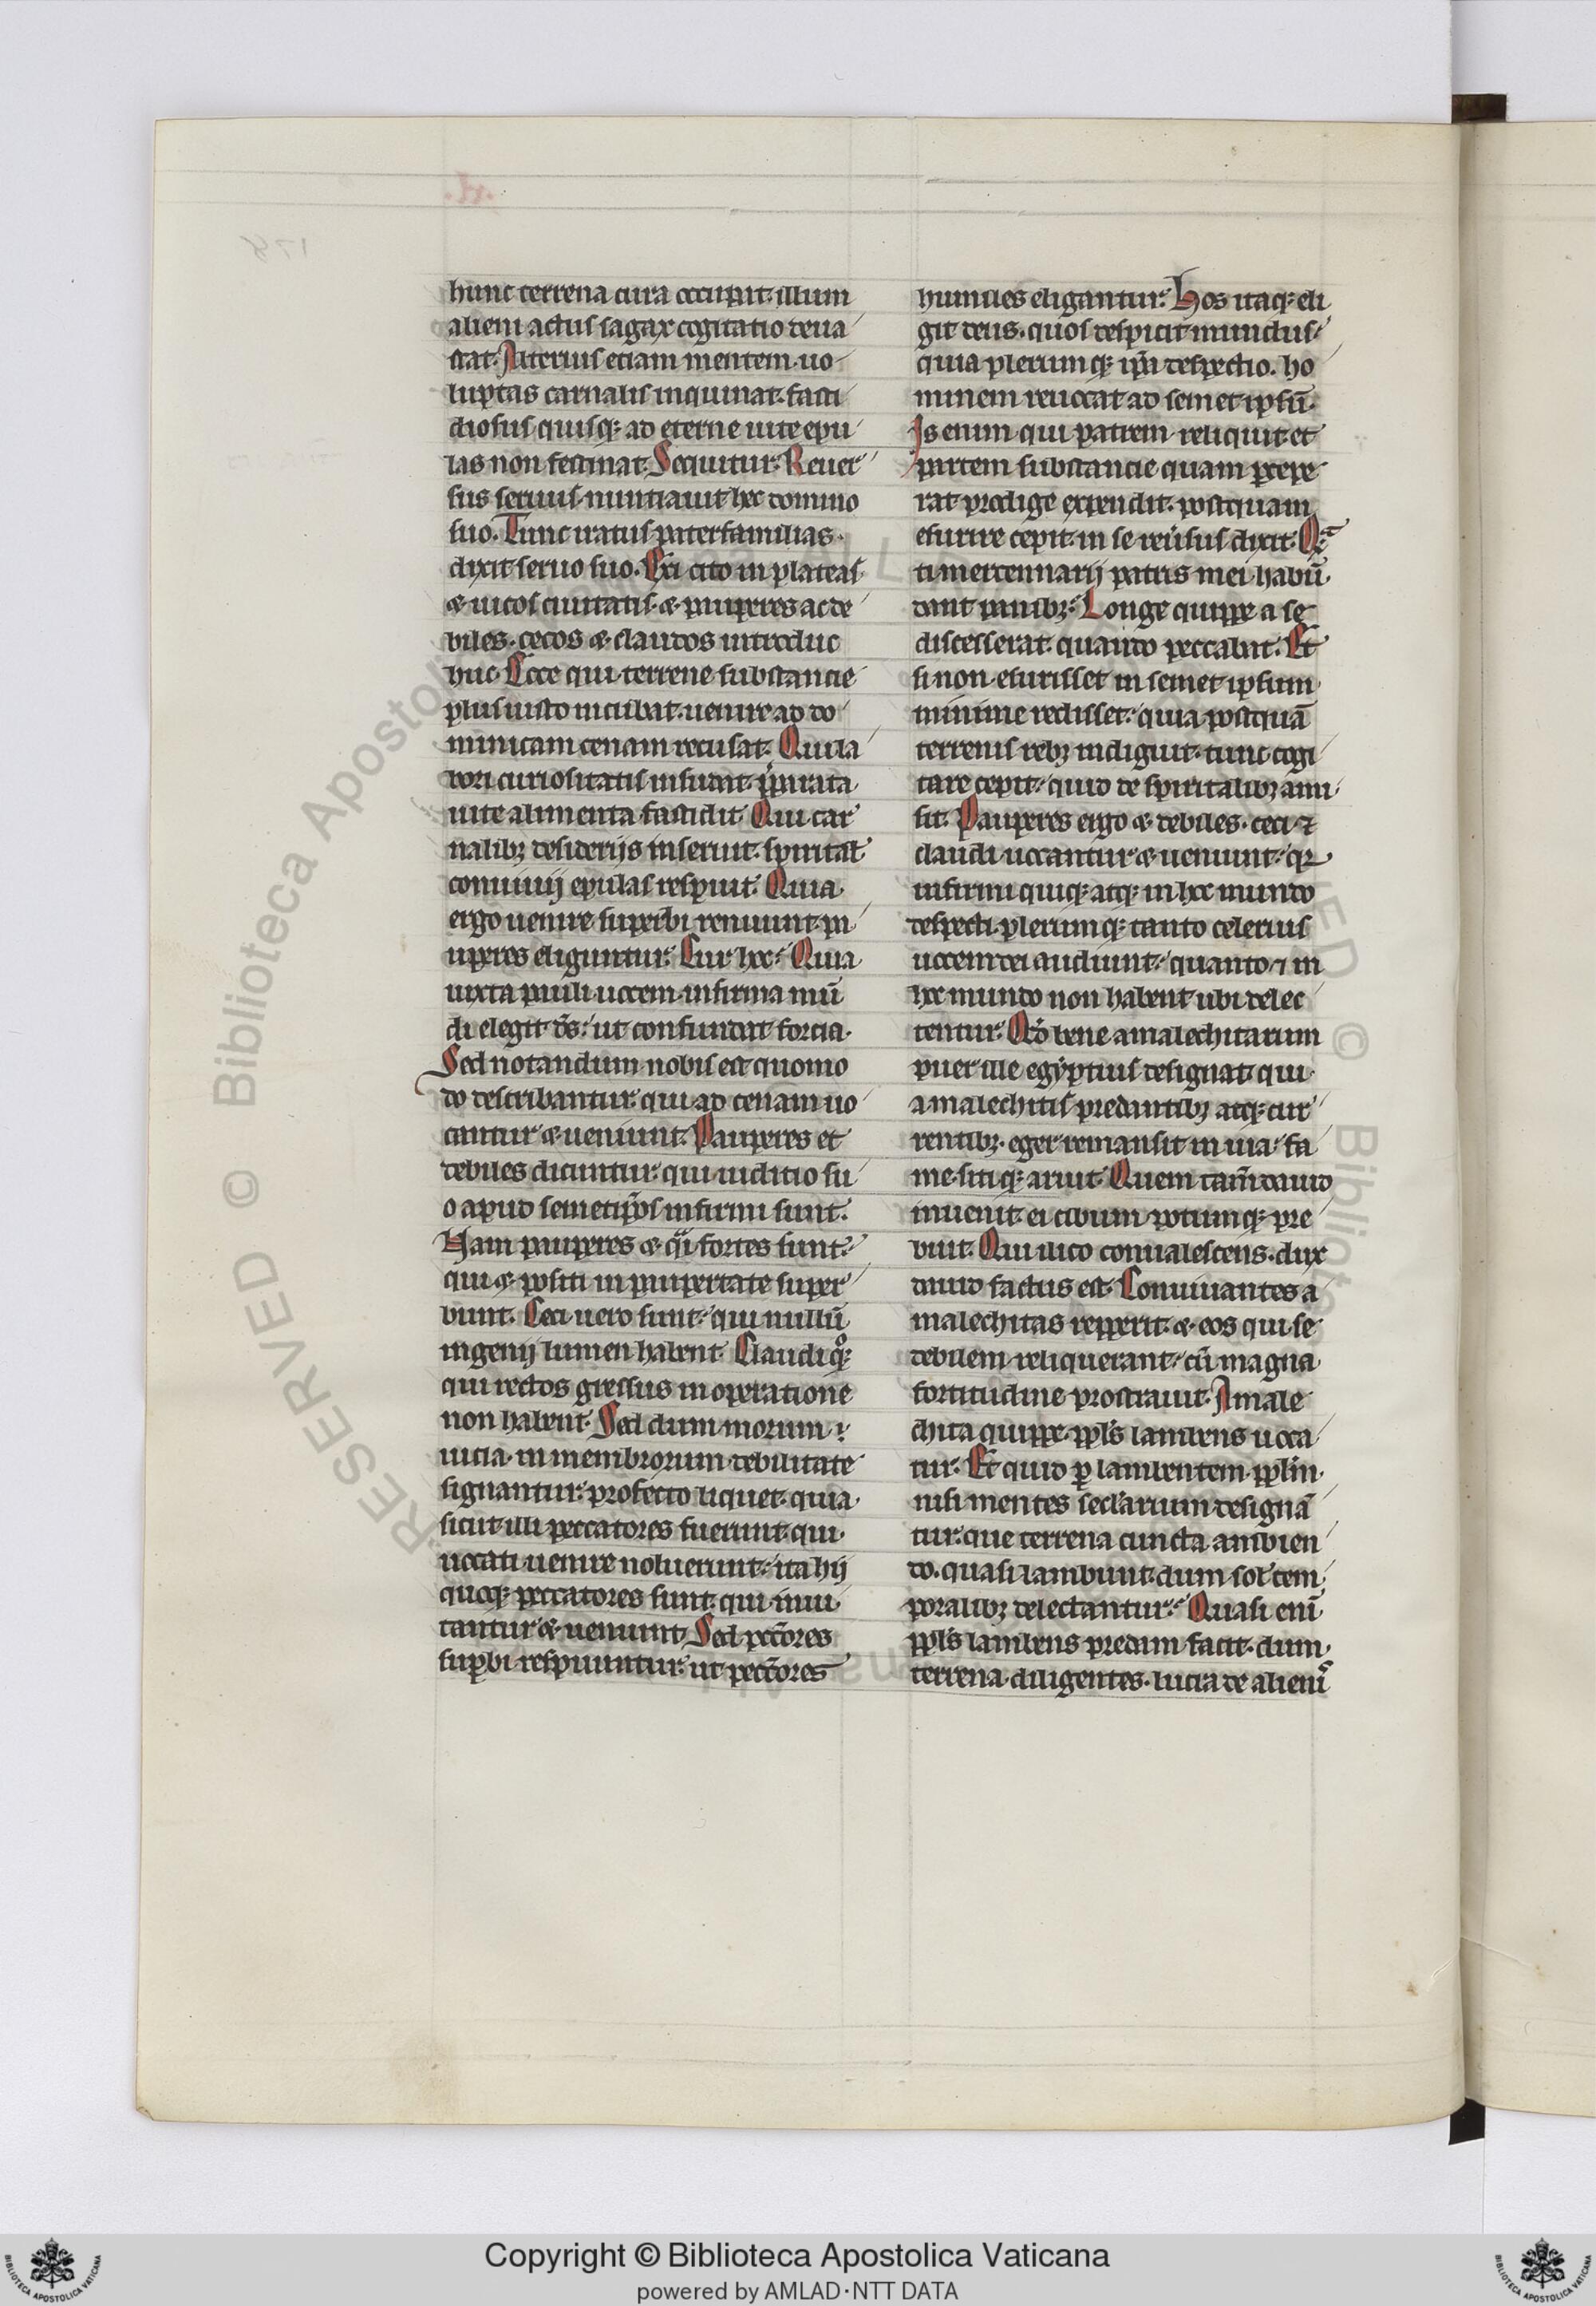 hunc terrena cura occupat. illum
alieni actus sagax cogitatio deua
stat. Alterius etiam mentem uo
luptas carnalis inquinat. fasti
diosus quisq; ad eterne uite epu
las non festinat. Sequitur. Reuer
sus seruus nuntiauit hec domino
suo. Tunc iratus paterfamilias.
dixit seruo suo. Exi cito in plateas
& uicos ciuitatis. & pauperes ac de
biles. cecos & claudos introduc
huc. Ecce qui terrene substancie
plus iusto incubat. uenire ad do
minicam cenam recusat. Qui la
bori curiositatis insudat. p̾parata
uite alimenta fastidit. Qui car
nalibꝫ desiderijs inseruit. spirital̾
conuiuij epulas respuit. Quia
ergo uenire superbi renuunt. pa
uperes eliguntur. Cur hoc? Quia
iuxta pauli uocem. infirma mū
di elegit ds̄. ut confundat forcia.
Sed notandum nobis est quomo
do describantur qui ad cenam uo
cantur & ueniunt. Pauperes et
debiles dicuntur. qui iuditio su
o apud semetip̄os infirmi sunt.
Nam pauperes & q̾i fortes sunt.
qui & positi in paupertate super
biunt. Ceci uero sunt. qui nullū
ingenij lumen habent. Claudi qͦ;
qui rectos gressus in operatione
non habent. Sed dum morum
uicia. in membrorum debilitate
signantur. profecto liquet. quia
sicut illi peccatores fuerunt. qui
uocati uenire noluerunt. ita hij
quoq; peccatores sunt. qui inui
tantur & ueniunt. Sed pecc̄ores
suꝑbi respuuntur. ut pecc̄ores
humiles eligantur. Hos itaq; eli
git deus. quos despicit mundus.
quia plerumq; ip̄a despectio. ho
minem reuocat ad semet ipsū.
Is enim qui patrem reliquit et
partem substancie quam ꝑcepe
rat prodige expendit. postquam
esurire cepit. in se reu̾sus dixit. Qᵃ
ti mercennarij patris mei habū
dant panibꝫ. Longe quippe a se
discesserat. quando peccabat. Et
si non esurisset in semet ipsum
minime redisset. quia postquā
terrenis rebꝫ indiguit. tunc cogi
tare cepit. quid de spiritalibꝫ ami
sit. Pauperes ergo & debiles. ceci ⁊
claudi uocantur & ueniunt. qꝛ
infirmi quiq; atq; in hoc mundo
despecti. plerumq; tanto celerius
uocem dei audiunt. quanto ⁊ in
hoc mundo non habent ubi delec
tentur. Qd̾ bene amalechitarum
puer ille egyptius designat. qui
amalechitis predantibꝫ atq; cur
rentibꝫ. eger remansit in uia. fa
me. sitiq; aruit. Quem tam̄ dauid
inuenit. ei cibum potumq; pre
buit. Qui ilico conualescens. dux
dauid factus est. Conuiuantes a
malechitas repperit. & eos qui se
debilem reliquerant. cū magna
fortitudine prostrauit. Amale
chita quippe. ppl̾s lambens uoca
tur. Et quid ꝑ lambentem ppl̾m
nisi mentes secl̾arium designā
tur. que terrena cuncta ambien
do. quasi lambunt. dum sol̾ tem
poralibꝫ delectantur. Quasi enī
ppl̾s lambens predam facit. dum
terrena diligentes. lucra de alieniˢ
Copyright © Biblioteca Apostolica Vaticana
powered by AMLAD·NTT DATA